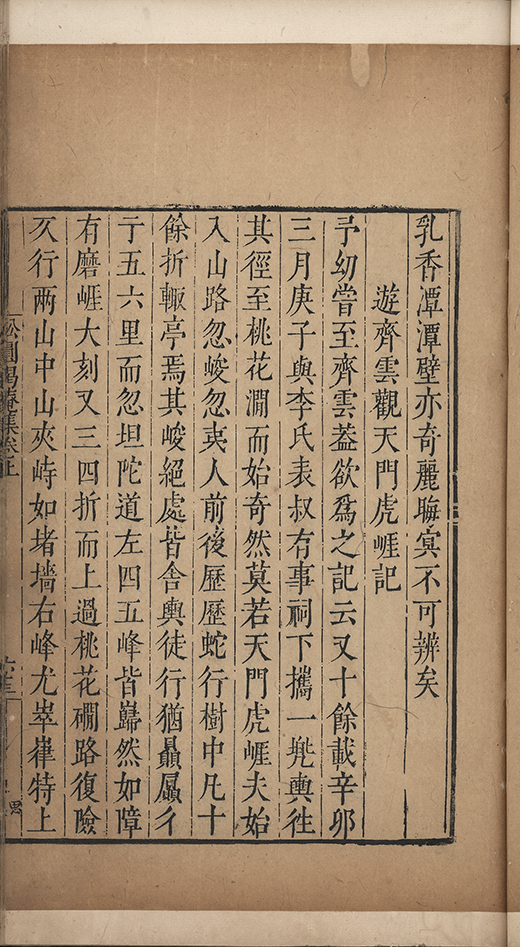 乳香潭潭壁亦奇麗晦㝠不可辨矣
遊齊雲觀天門虎崕記
予幼嘗至齊雲葢欲爲之記云又十餘載辛卯
三月庚子與李氏表叔有事祠下攜一兠輿徃
其徑至桃花澗而始奇然莫若天門虎崕夫始
入山路忽峻忽夷人前後歷歷蛇行樹中凡十
餘折輙亭焉其峻絕處皆舍輿徒行猶贔屭彳
亍五六里而忽坦陀道左四五峰皆巋然如障
有磨崕大刻又三四折而上過桃花磵路復險
又行兩山中山夾峙如堵墻右峰尤崒嵂特上
松圓偈庵集卷上